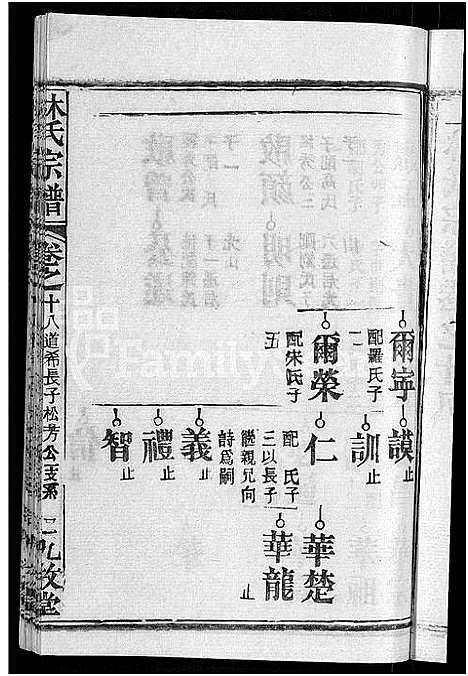 林氏宗譜
卷之一
十八道希長子松芳公支系
二
九牧堂
爾寧
配羅氏子
二
謨
止
訓
止
爾榮
配宋氏子
五
仁
配 氏子
三以長子
繼親兄向
詩為嗣
華楚
華龍
止
義
止
禮
止
智
止